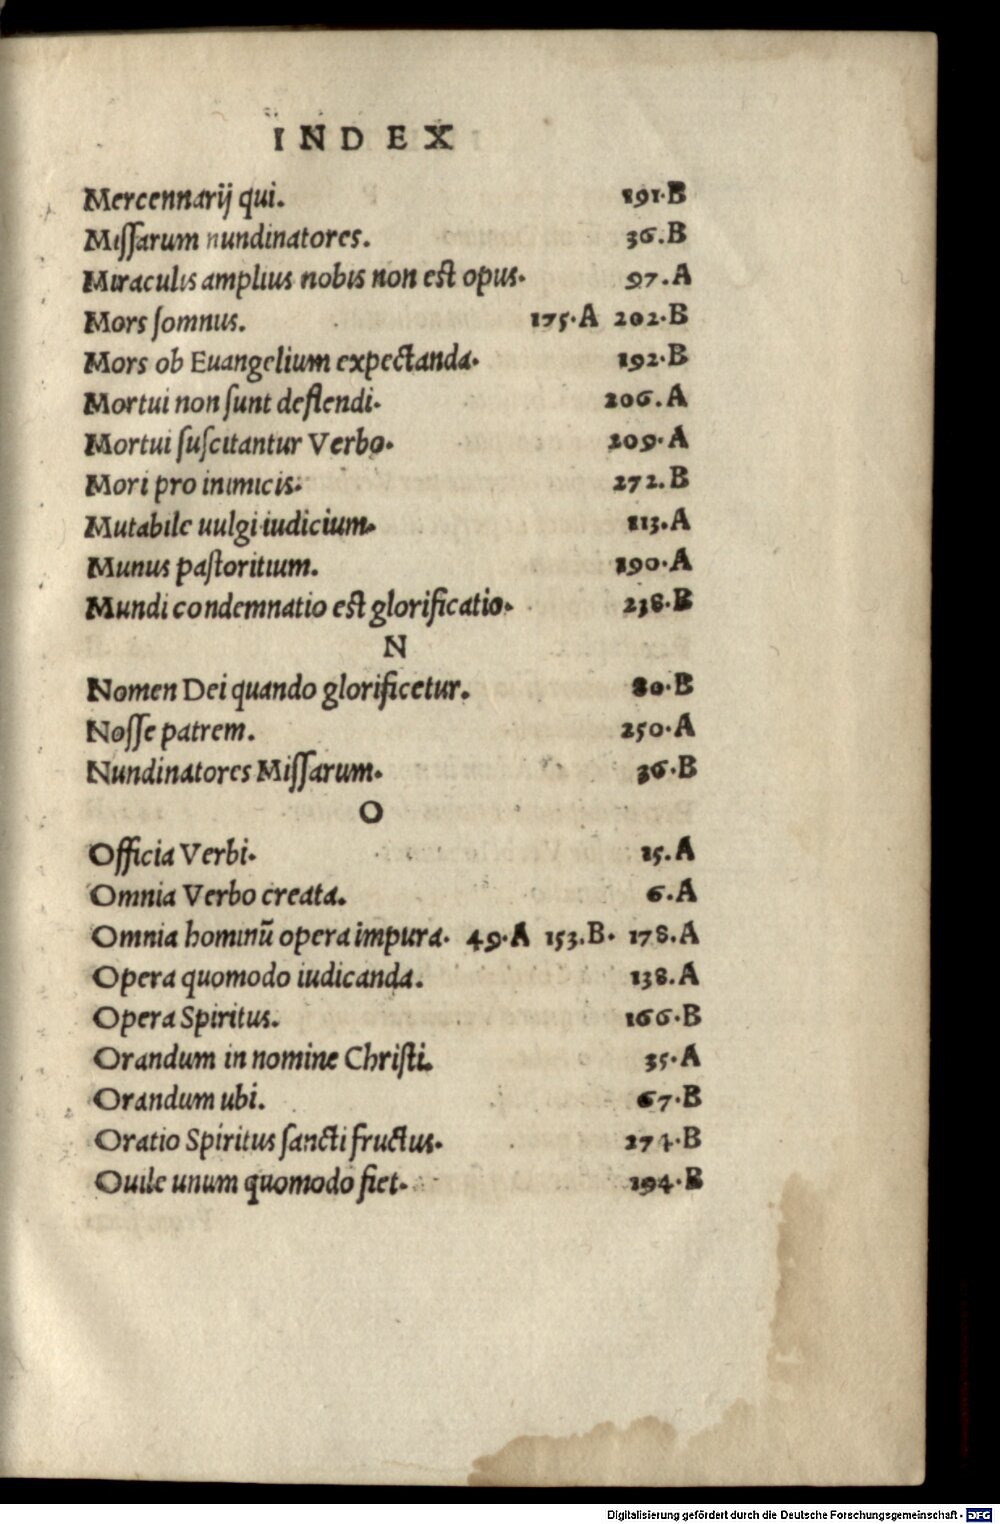 INDEX
Mercennarij qui. 191.B
Miſſarum nundinatores. 36.B
Miraculis amplius nobis non est opus. 97.A
Mors ſomnus. 175.A 202.B
Mors ob Euangelium expectanda. 192.B
Mortui non ſunt deflendi. 206.A
Mortui ſuſcitantur Verbo. 209.A
Mori pro inimicis. 272.B
Mutabile uulgi iudicium. 113.A
Munus paſtoritium. 190.A
Mundi condemnatio est glorificatio. 238.B
N
Nomen Dei quando glorificetur. 80.B
Noſſe patrem. 250.A
Nundinatores Miſſarum. 36.B
O
Officia Verbi. 15.A
Omnia Verbo creata. 6.A
Omnia hominũ opera impura. 49.A 153.B. 178.A
Opera quomodo iudicanda. 138.A
Opera Spiritus. 166.B
Orandum in nomine Chriſti. 35.A
Orandum ubi. 67.B
Oratio Spiritus ſancti fructus. 274.B
Ouile unum quomodo fiet. 194.B
Digitalisierung gefördert durch die Deutsche Forschungsgemeinschaft - DFG